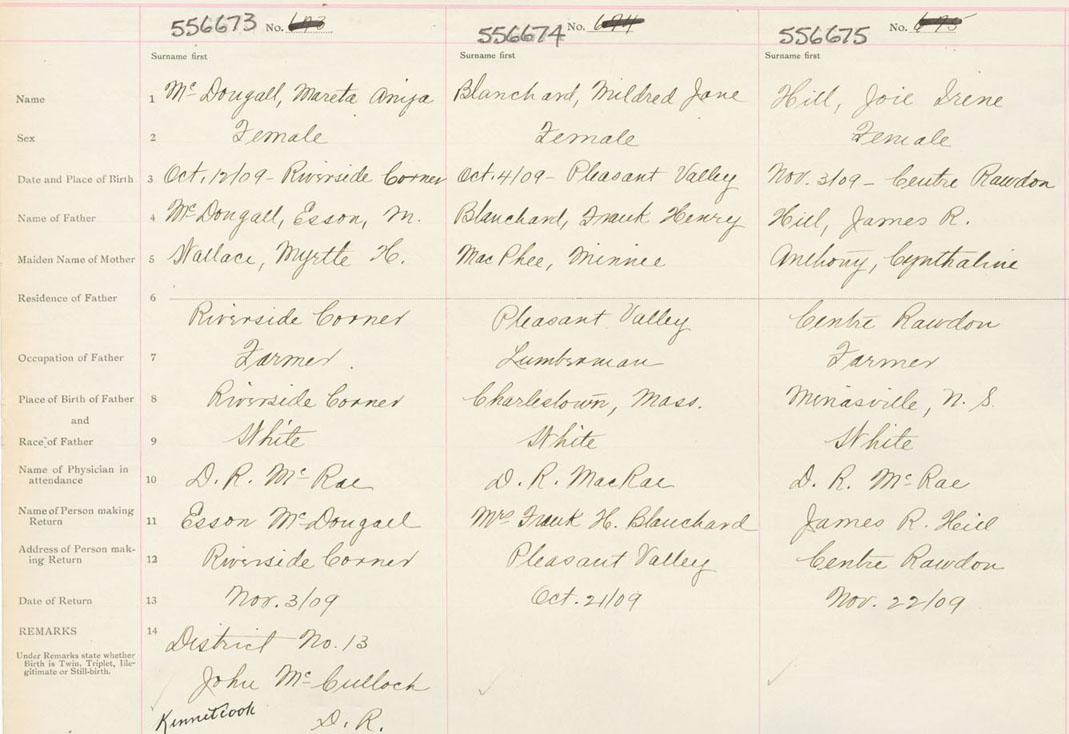 556673 No. 673 556674 No. 674 556675 No. 675
Surname first Surname first Surname first
Name 1 Mc Dougall, Mareta Blanchard, Mildred Jane Hill, Joie Irene
Sex 2 Female Female Female
Date and Place of Birth 3 Oct. 12/09 - Riverside Corner Oct. 4/09 - Pleasant Valley Nov. 3/09 - Centre Rawdon
Name of Father 4 Mc Dougall, Esson, M. Blanchard, Frank Henry Hill, James R.
Maiden Name of Mother 5 Wallace, Myrtle H. MacPhee, Minnie Anthony, Cynthaline
Residence of Father 6
Riverside Corner Pleasant Valley Centre Rawdon
Occupation of Father 7 Farmer. Lumberman Farmer
Place of Birth of Father 8 Riverside Corner Charlestown, Mass. Minasville, N. S.
and
Race of Father 9 White White White
Name of Physician in
attendance 10 D. R. Mc Rae D. R. MacRae D. R. Mc Rae
Name of Person making
Return 11 Esson Mc Dougall Mrs Frank H. Blanchard James R. Hill
Address of Person mak-
ing Return 12 Riverside Corner Pleasant Valley Centre Rawdon
Date of Return 13 Nov. 3/09 Oct. 21/09 Nov. 22/09
REMARKS 14 District No. 13
Under Remarks state whether
Birth is Twin, Triplet, Ille-
gitimate or Still-birth.
John Mc Culloch
Kennetcook D. R.